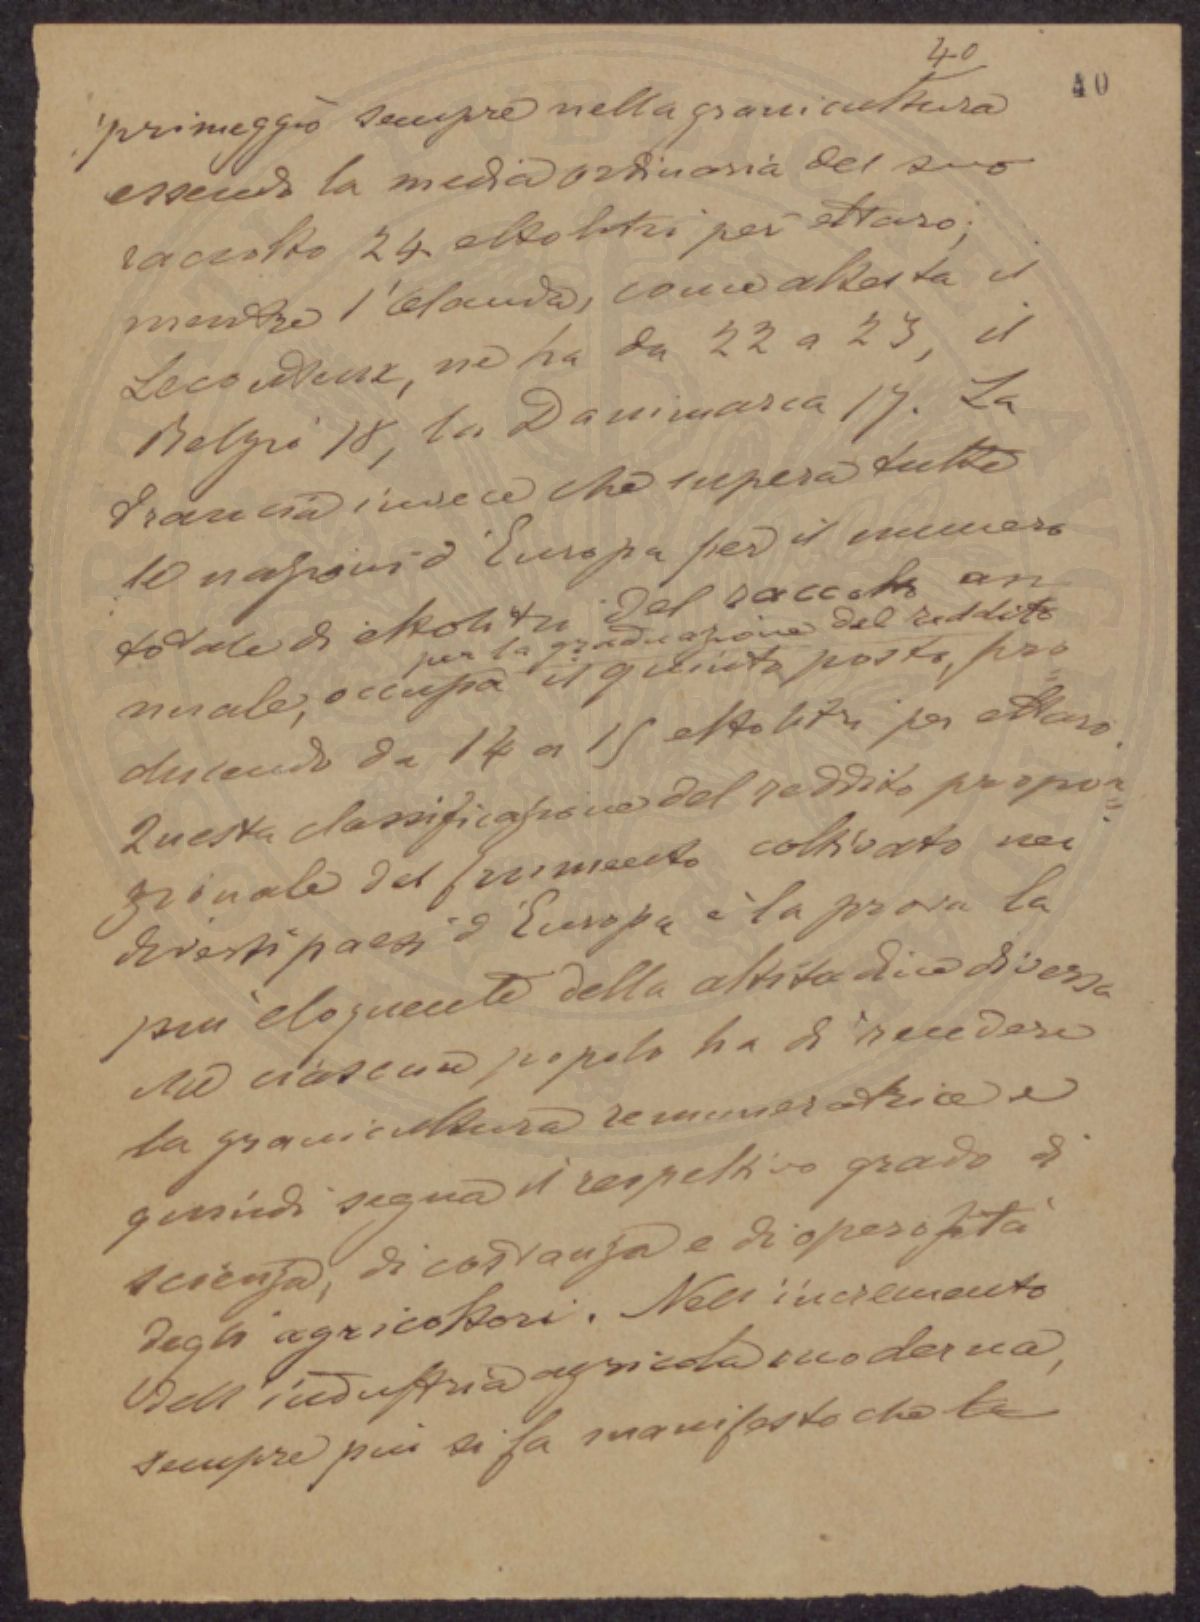 40
40
primeggiò sempre nella granicultura
essendo la media ordinaria del suo
raccolto 24 ettolitri per ettaro;
mentre l'Olanda, come attesta il
Lecouteux, ne ha da 22 a 23, il
Belgio 18, la Danimarca 17. La
Francia invece che supera tutte
le nazioni d'Europa per il numero
totale di ettolitri del raccolto an
per la graduazione del reddito
nuale, occupa il quinto posto, pro=
ducendo da 14 a 15 ettolitri per ettaro.
Questa classificazione del reddito propor=
zionale del frumento coltivato nei
diversi paesi d'Europa è la prova la
più eloquente della attitudine diversa
che ciascun popolo ha di rendere
la granicultura remuneratrice e
quindi segna il respettivo grado di
scienza, di costanza e di operosità
degli agricoltori. Nell'incremento
dell'industria agricola moderna,
sempre più si fa manifesto che la